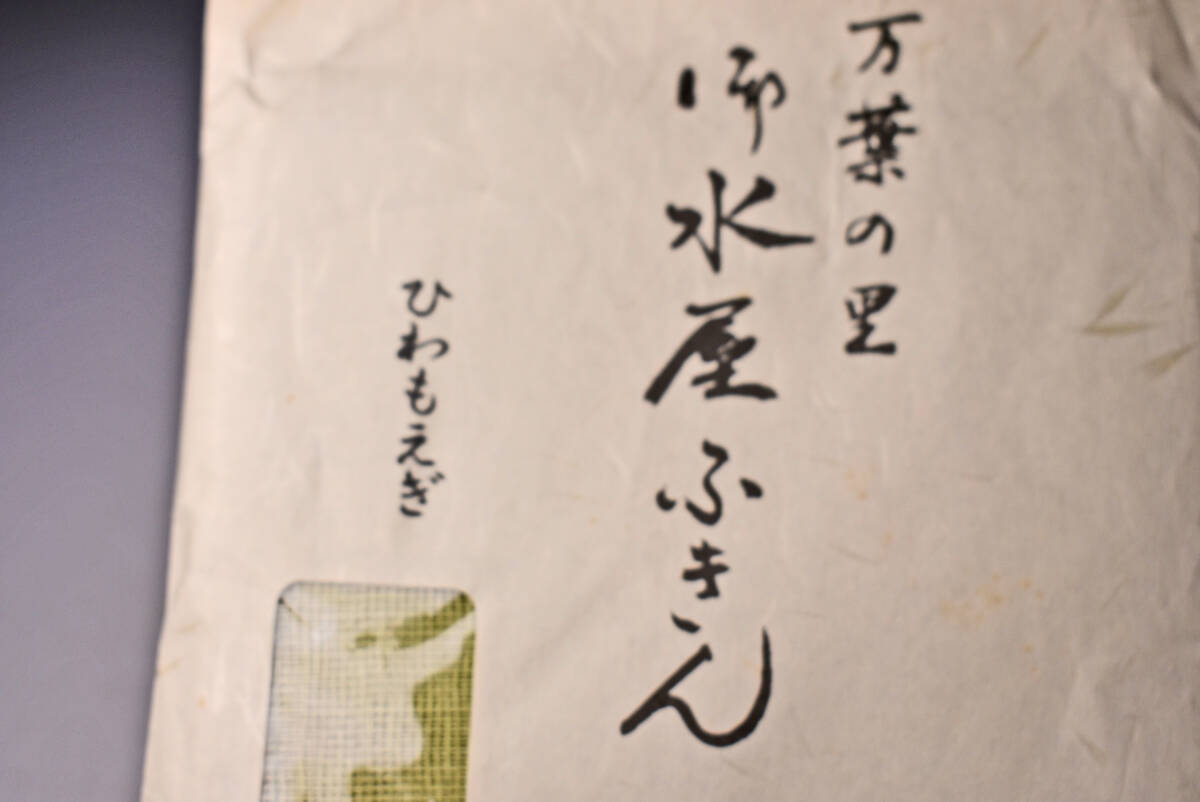 万葉の里
御水屋ふきん
ひわもえぎ